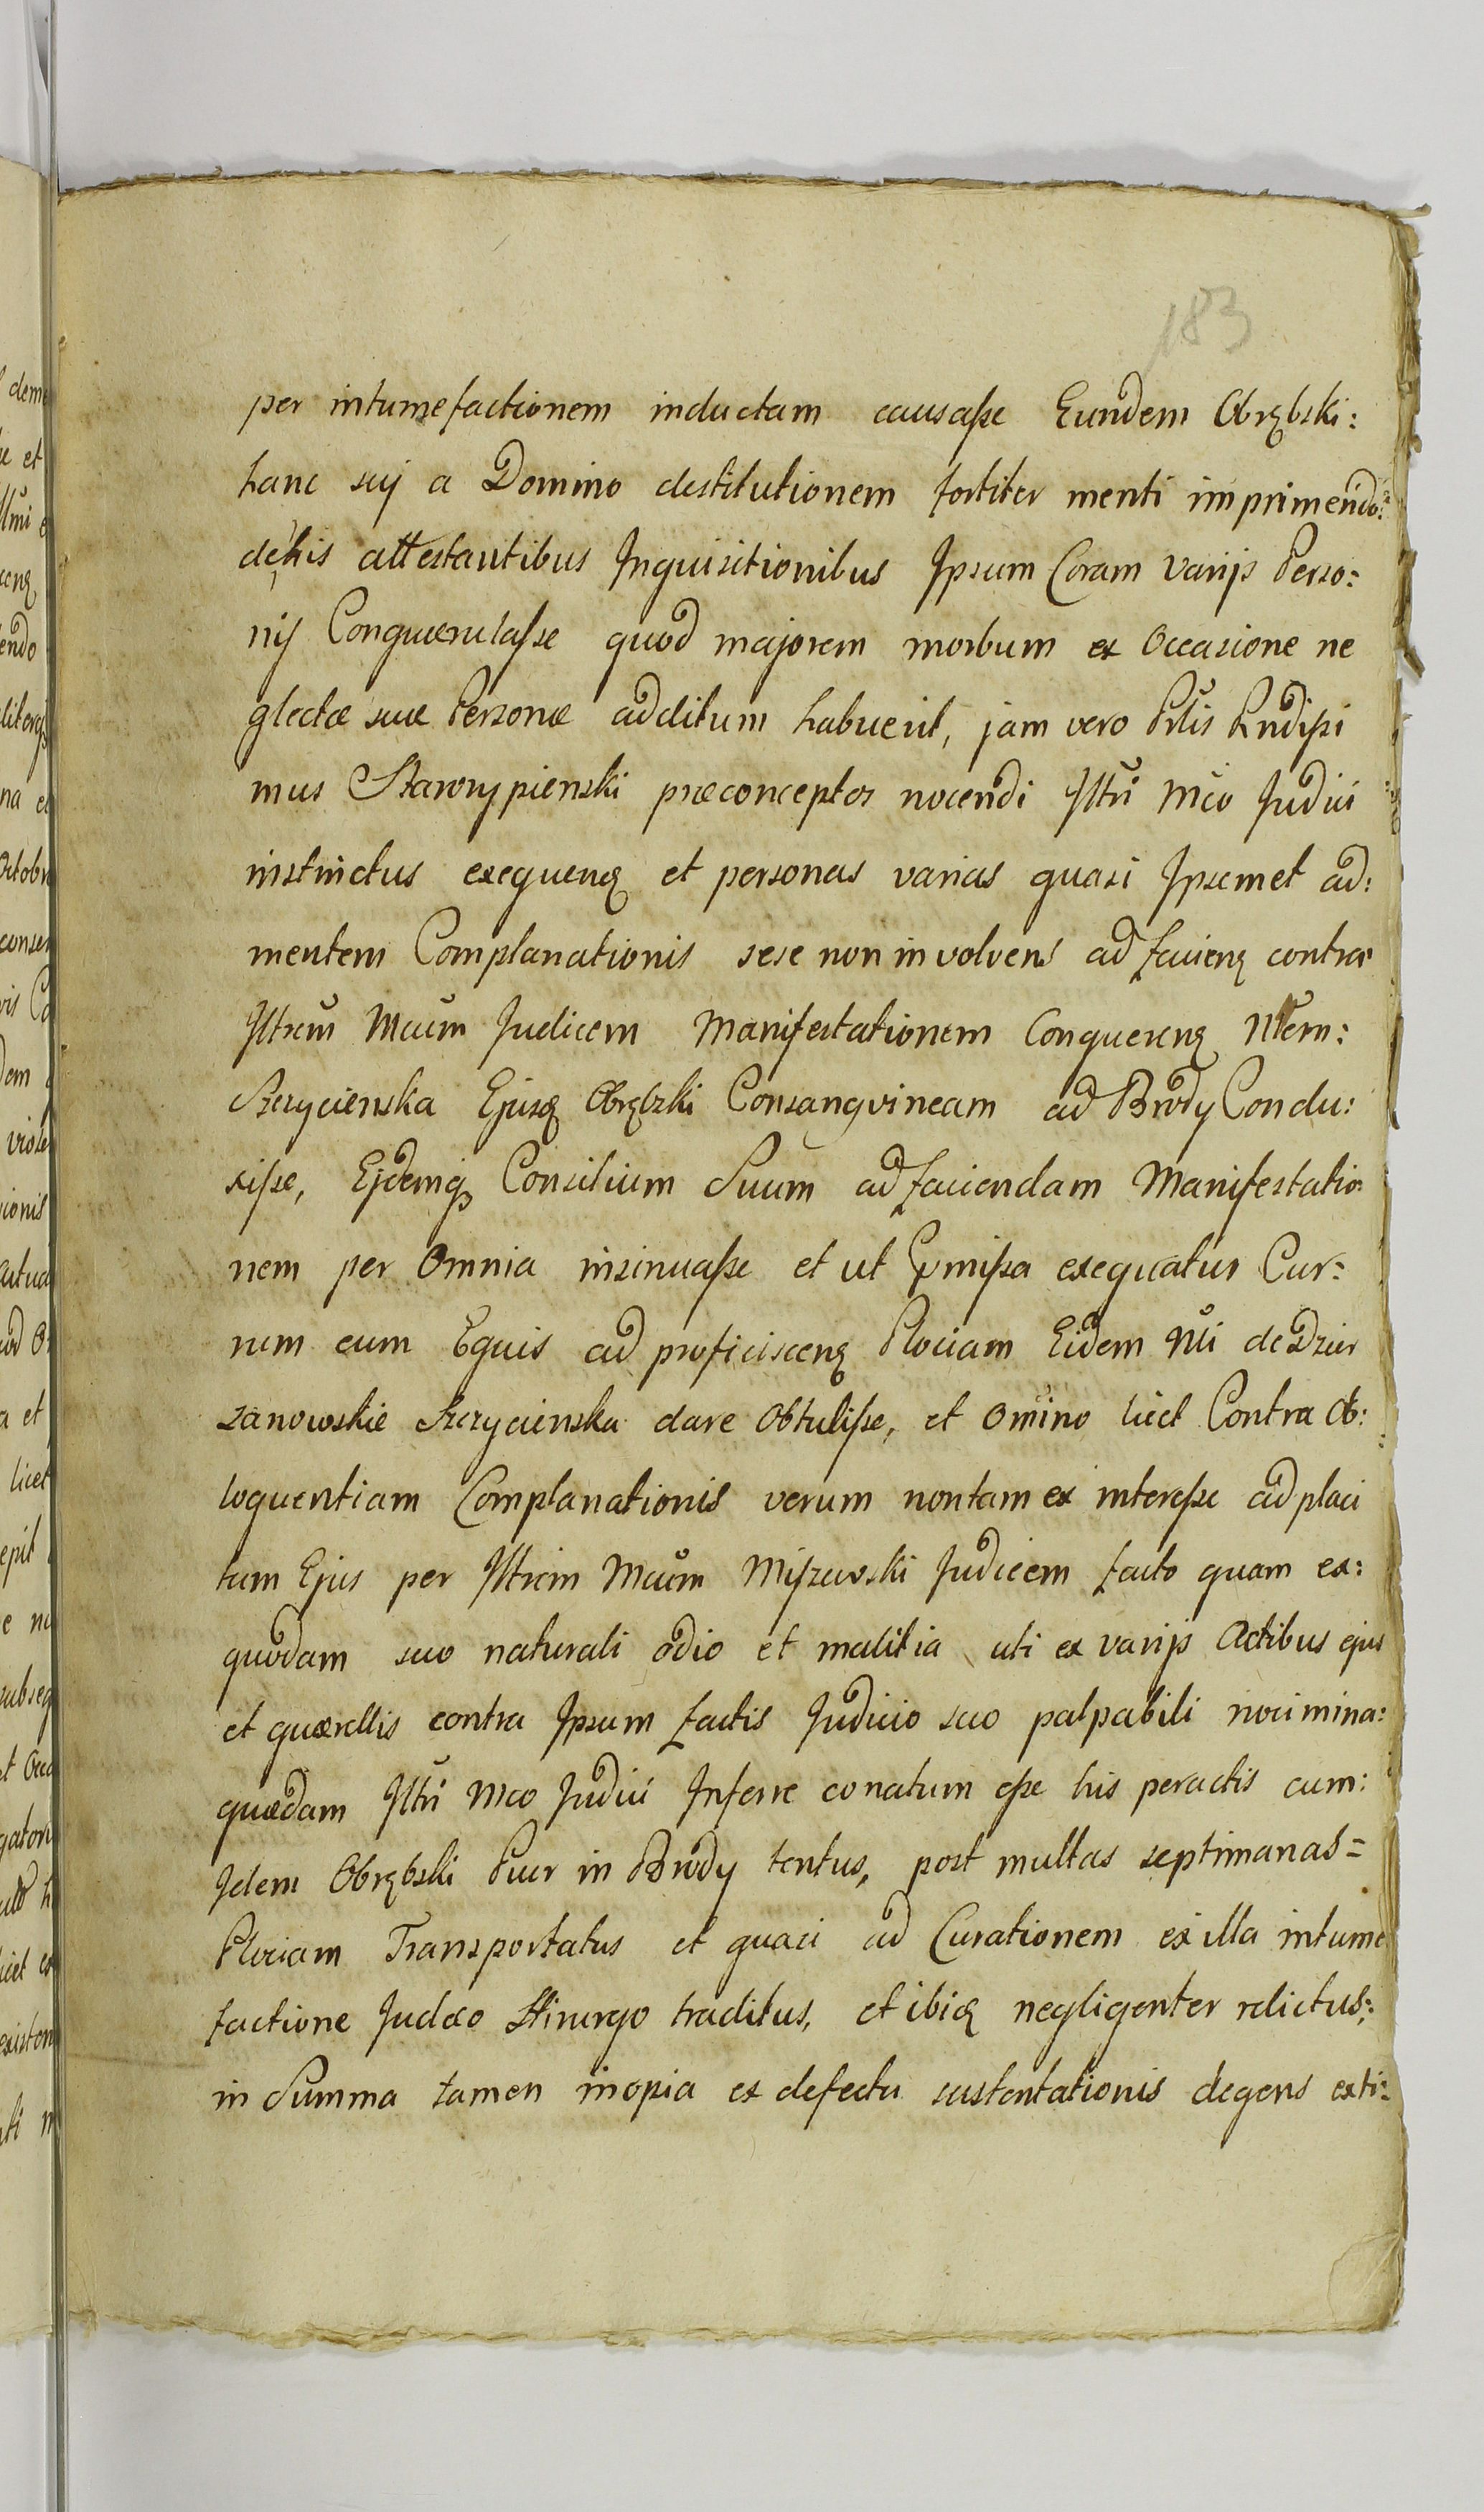 183
per intumefactionem inductam causaſse Eundem Obrębski:
hanc suj a Domino destitutionem fortiter menti imprimendo:
de his attestantibus Inquisitionibus Ipsum Coram varijs Perso:
nis Conquærulaſse quod majorem morbum ex Occasione ne
glectæ suæ Personæ additum habuerit, jam vero Prlis Rndiſsi
mus Starorypienski præconceptos nocendi Illtri Mco Judici
instinctus exequenq et personas varias quasi Ipsemet ad:
mentem Complanationis sese non involvens ad facienq contra
Illtrem Mcum Judicem Manifestationem Conquerenq Nlem:
Szczycienska Ejusq Obrębski Consangvineam ad Brody Condu:
xiſse, Ejdemq Consilium Suum ad faciendam Manifestatio:
nem per Omnia insinuaſse et ut Præmiſsa exequatur Cur:
rum cum Equis ad proficiscenq Plociam Eidem Nli de Dzier
zanowskie Szczycienska dare Obtuliſse, et Omino licet Contra Ob:
loquentiam Complanationis verum non tam ex intereſse ad placi
tum Ejus per Illtrem Mcum Miszewski Judicem facto quam ex:
quodam suo naturali odio et malitia uti ex varijs Actibus ejus
et quærellis contra Ipsum factis Judicio suo palpabili nocimina:
quædam Illtri Mco Judici Inferre conatum eſse his peractis cum:
Idem Obrębski Puer in Brody tentus, post multas septimanas=
Plociam Transportatus et quasi ad Curationem ex illa intume
factione Judæo Hirurgo traditus, et ibiq negligenter relictus,:
in Summa tamen inopia ex defectu sustentationis degens exti: